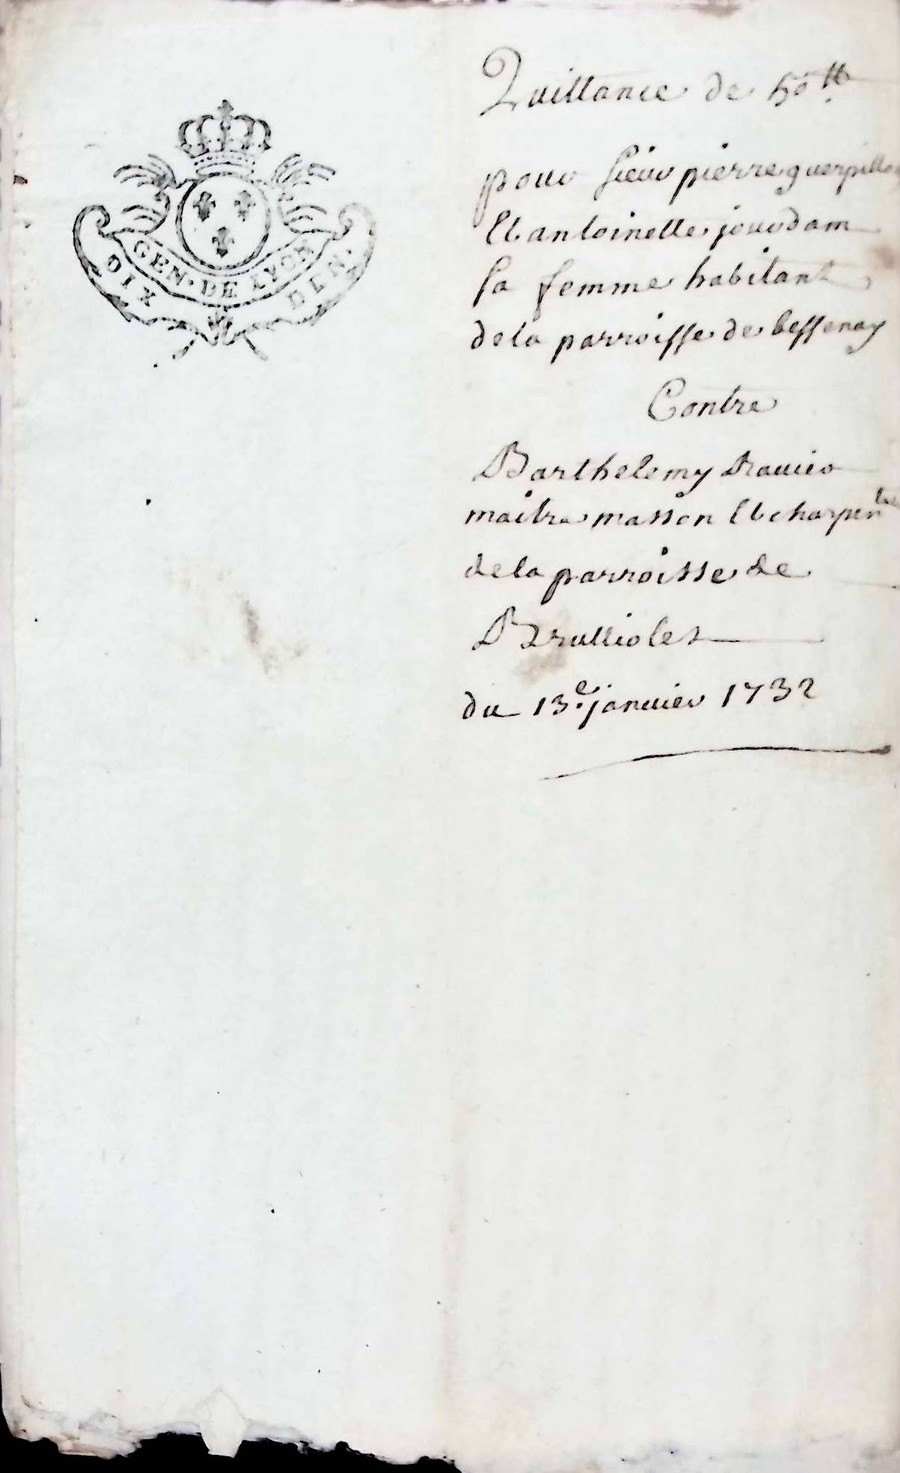 GEN. DE LYON
DIX DEN.
Quittance de 50 ₶.
pour sieur pierre guerpillon
Et antoinette jourdam
sa femme habitant
de la parroisse de bessenay
Contre
Barthelemy
maitre masson Et charpentie
de la parroisse de
Brulliolet
du 13.e janvier 1732